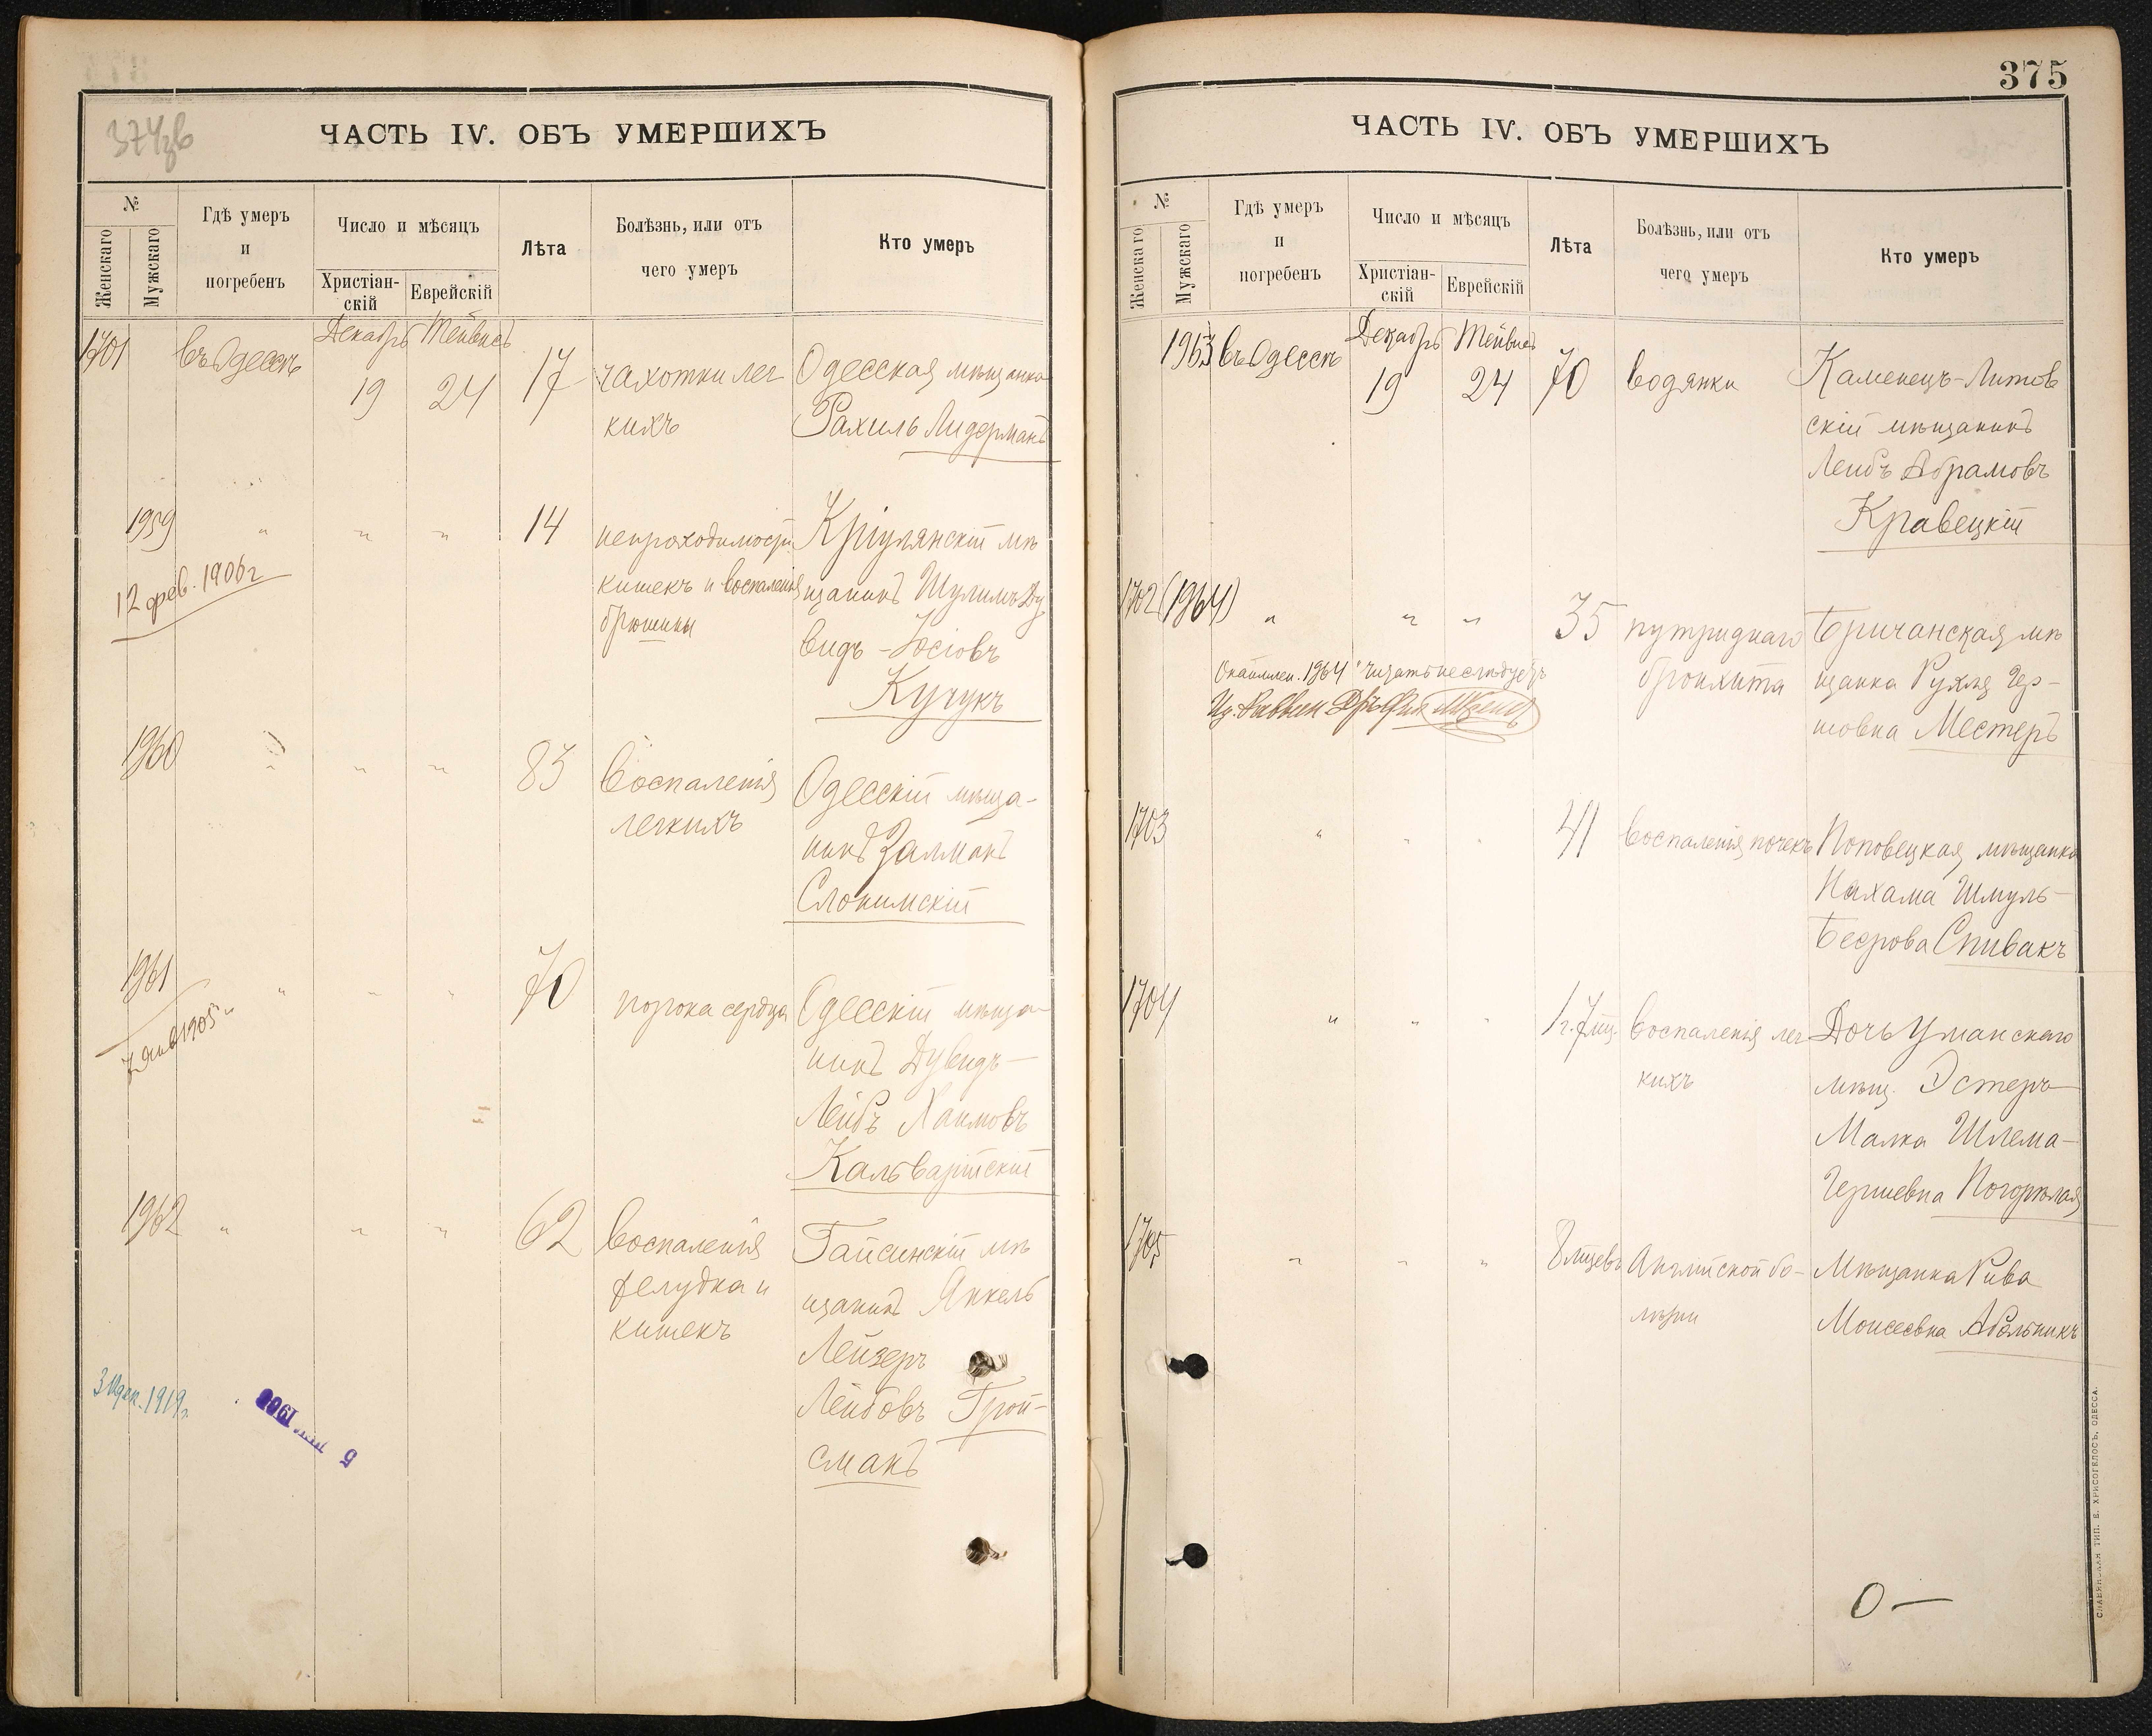 374зв
ЧАСТЬ IV. ОБЪ УМЕРШИХЪ
№
Женскаго
Мужскаго
Гдѣ умеръ
и
погребенъ
Число и мѣсяцъ
Христіан-
скій
Еврейскій
Лѣта
Болѣзнь, или отъ
чего умеръ
Кто умеръ
1701 въ Одессѣ Декабрь 19 Тейвисъ 24 17 чахотки лег
кихъ
Одесская мѣщанка
Рахиль Лидерманъ
1959 " " " 14 непроходимости
кишекъ и воспаленія
брюшины
Кріулянскій мѣ
щанинъ Шулимъ Ду
видъ-Іосіовъ
Кучукъ
12 фев. 1906 г
1960 " " " 83 Воспаленія
легкихъ
Одесскій мѣща-
нинъ Залманъ
Слонимскій
1961 " " " 70 порока сердца
Одесскій мѣща-
нинъ Дувидъ-
Лейбъ Хаимовъ
Кальварійскій
7 Янв 1905 г.
1962 " " " 62 Воспаленія
желудка и
кишекъ
Гайсинскій мѣ
щанинъ Янкель
Лейзеръ
Лейбовъ Грой-
сманъ
1919 г.
5 1906
375
ЧАСТЬ IV. ОБЪ УМЕРШИХЪ
№
Женскаго
Мужскаго
Гдѣ умеръ
и
погребенъ
Число и мѣсяцъ
Христіан-
скій
Еврейскій
Лѣта
Болѣзнь, или отъ
чего умеръ
Кто умеръ
1963 въ Одессѣ Декабрь 19 Тейвисъ 24 70 водянки
Каменецъ-Литов
скій мѣщанинъ
Лейбъ Абрамовъ
Кравецкій
1702 (1964) " " " 35 путриднаго
бронхита
Бричанская мѣ
щанка Рухля Гер-
шовна Местеръ
1964 читать не слѣдуетъ
1703 " " " 41 Воспаленія почекъ
Поповецкая мѣщанка
Нахама Шмуль-
Беерова Спивакъ
1704 " " " 1 г. 7 мц. Воспаленія лег
кихъ
Дочь Уманскаго
мѣщ. Эстеръ
Малка Шлема-
Гершевна Погорѣлая
1705 " " " 8 мцевъ Англійской бо-
лѣзни
Мѣщанка Рива
Моисеевна Абольникъ
СЛАВЯНСКАЯ ТИП. Е. ХРИСОГЕЛОСЪ, ОДЕССА.